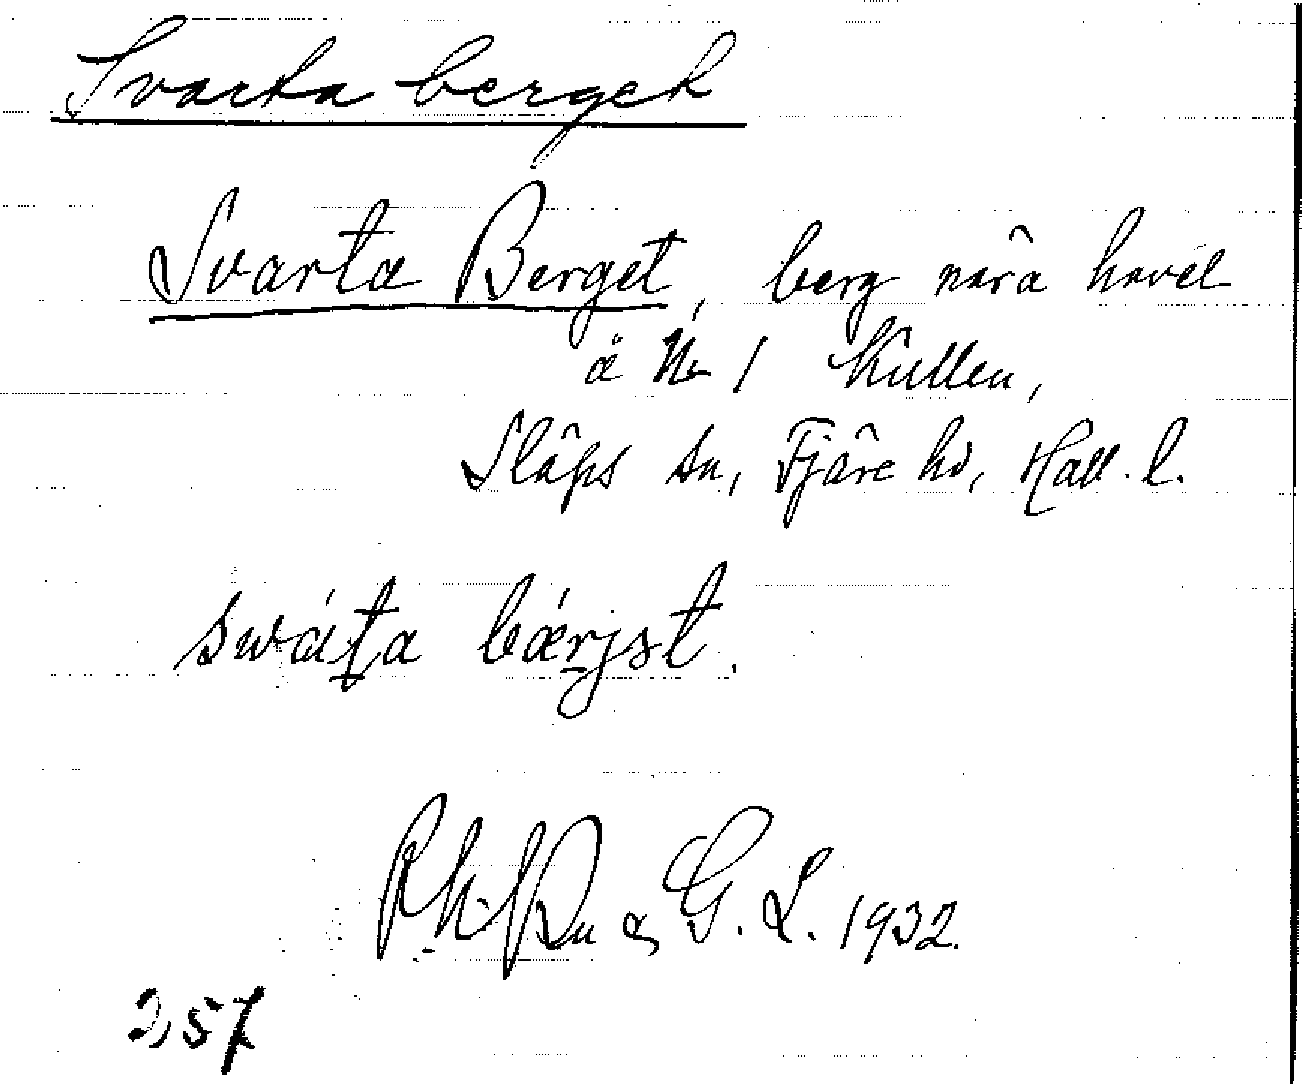 Svarta berget
Svarta Berget, berg nära havet
å Nr 1 Kullen,
Släps sn, Fjäre hd, Hall. l.
swáta bǽrjət.
& G. L. 1932.
257